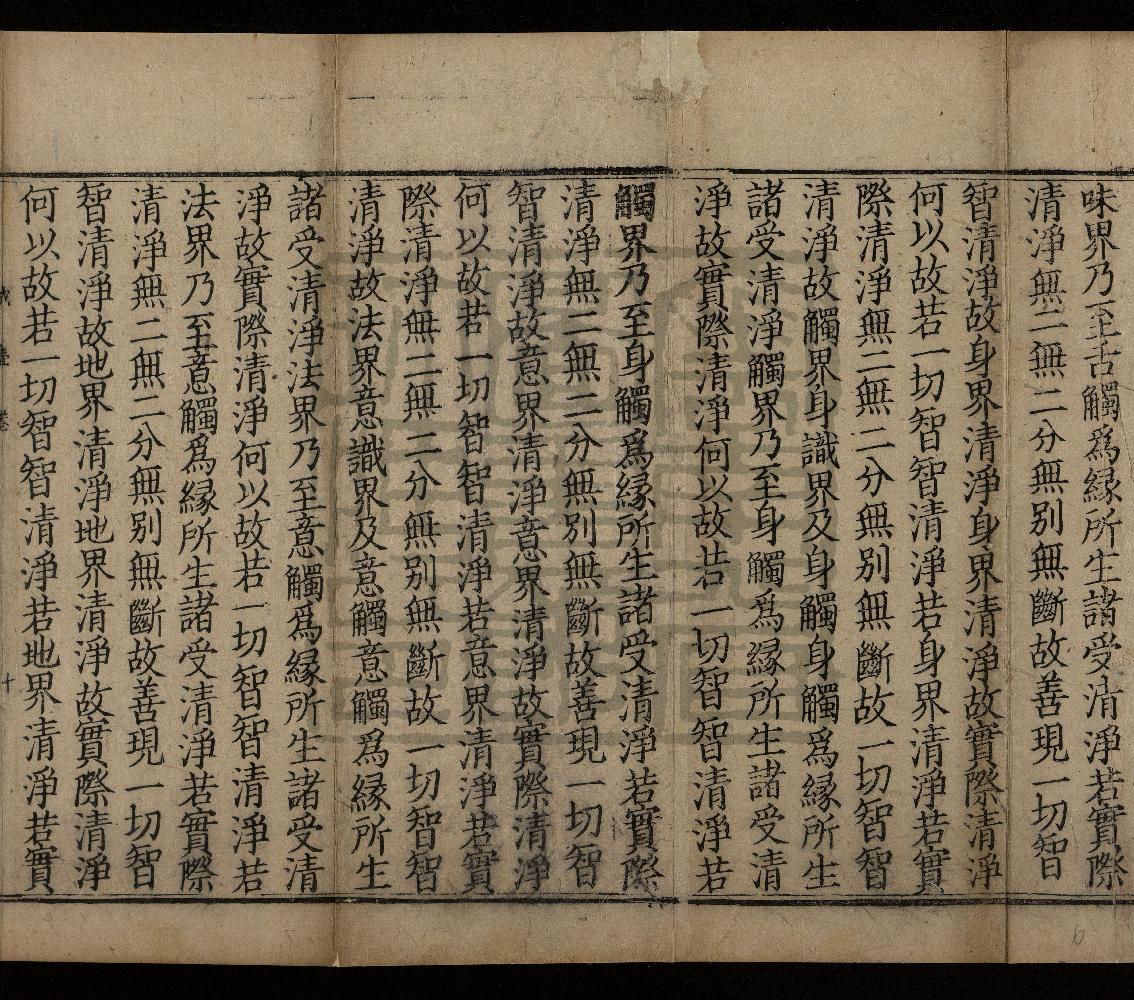 味界乃至舌觸爲縁所生諸受清淨若實際
清淨無二無二分無别無斷故善現一切智
智清淨故身界清淨身界清淨故實際清淨
何以故若一切智智清淨若身界清淨若實
際清淨無二無二分無别無斷故一切智智
清淨故觸界身識界及身觸身觸爲縁所生
諸受清淨觸界乃至身觸爲縁所生諸受清
淨故實際清淨何以故若一切智智清淨若
觸界乃至身觸爲縁所生諸受清淨若實際
清淨無二無二分無别無斷故善現一切智
智清淨故意界清淨意界清淨故實際清淨
何以故若一切智智清淨若意界清淨若實
際清淨無二無二分無别無斷故一切智智
清淨故法界意識界及意觸意觸爲縁所生
諸受清淨法界乃至意觸爲縁所生諸受清
淨故實際清淨何以故若一切智智清淨若
法界乃至意觸爲縁所生諸受清淨若實際
清淨無二無二分無别無斷故善現一切智
智清淨故地界清淨地界清淨故實際清淨
何以故若一切智智清淨若地界清淨若實
十
6